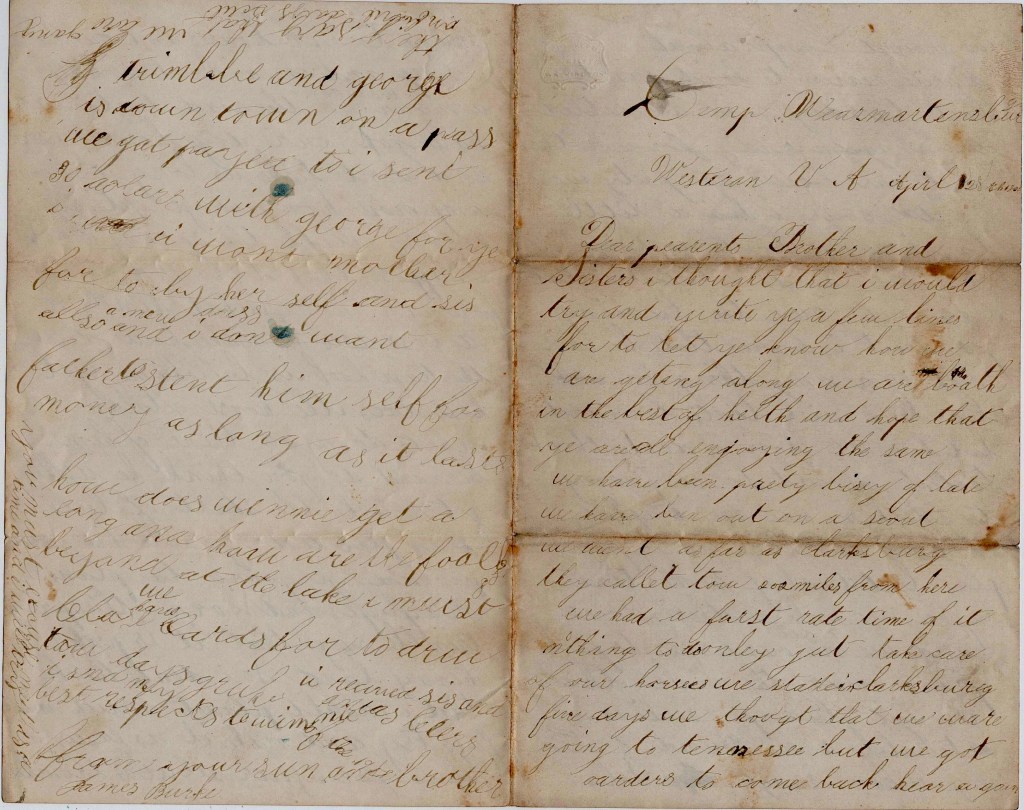 Camp Near martensburg
Western V A April 28
Dear parents Brother and
Sisters i thought that i would
try and write ye a few lines
for to let ye know how we
are geting along we are boath
in the best of helth and hope that
ye are all engoying the same
we have been prety bisey of late
we have ben out on a scout
we went as far as clarksburg
they callet tow 200 miles from here
we had a furst rate time of it
nthing to do onley jut take care
of our horses we staid in clarksburg
five days we thougt that we ware
going to tennessee but we got
oarders to come back hear a gain
they say that we are going
trimble and george
is down town on a pass
we got payed to i sent
30 dolars with george for ye
i want mother
for to by her self and sis
a new dress
allso and i dont want
father to stent him self for
money as long as it lasts
how does winnie get a
long and how are the foalks
beyond at the lake i must
we have
oards for to drew
tow days grub i received sis and
letters
best respects to
from your sun and brother
James Burke